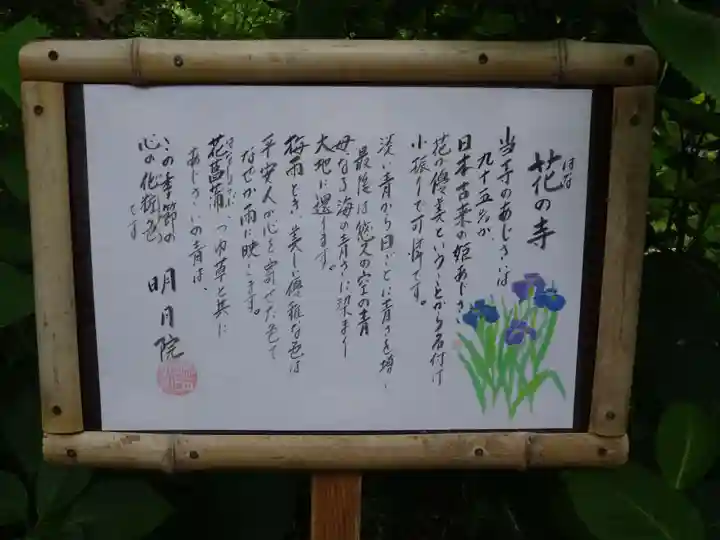 はな
花の寺
当寺のあじさいは
九十五%が
日本古来の姫あじさい
花の優美ということから名付け
小振りで可憐です。
淡い青から日ごとに青さを増し
最後は悠久の空の青
母なる海の青さに染まり
大地に還ります。
梅雨どき、美しく優雅な色は
平安人が心を寄せた色で
なぜか雨に映えます。
花菖蒲、つゆ草と共に
あじさいの青は、
この季節の
心の化粧色です
明月院